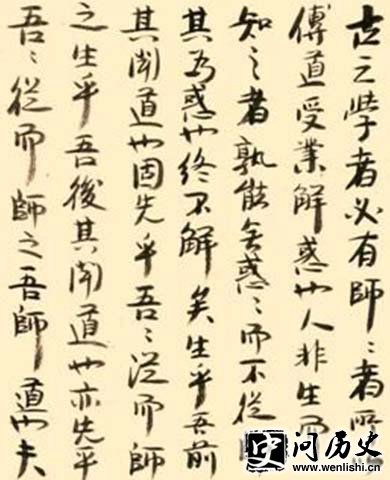 古之學者必有師〻者所
傳道受業解惑也人非生而
知之者孰能無惑〻而不從
其為惑也終不解矣生乎吾前
其聞道也固先乎吾〻從而師
之生乎吾後其聞道也亦先乎
吾〻從而師之吾師道也夫
问历史
www.wenlishi.cn